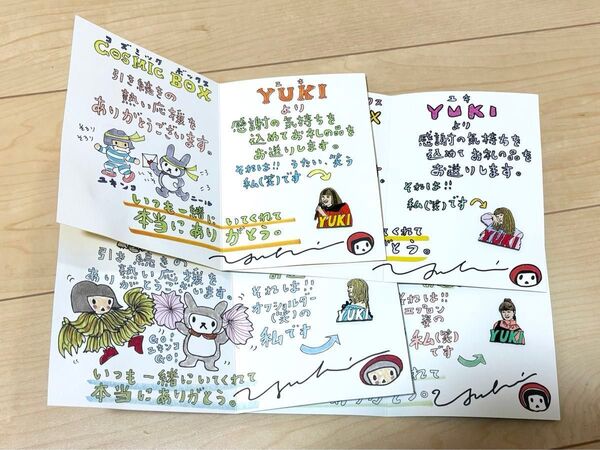 コズミック ボックス
COSMIC BOX
引き続きの
熱い応援を
ありがとうございます。
そろり
そろり
ユキンコ
ニール
いつも一緒に
本当にあり
ユキ
YUKI
より
感謝の気持ちを
込めてお礼の品を
お送りします。
それは!! うたい、笑う
私(笑)です
YUKI
いてくれて
がとう。
ユキ
YUKI
より
感謝の気持ちを
込めてお礼の品を
お送りします。
それは!!
私(笑)です
YUKI
くれて
とう。
引き続きの
熱い応援を
ありがとうございます。
GO!
GO!
いつも一緒にいてくれて
本当にありがとう。
それは!!
オフショルダー
(笑)の
私です
YUKI
それは!!
エプロン
姿の
私(笑)
です
YUKI